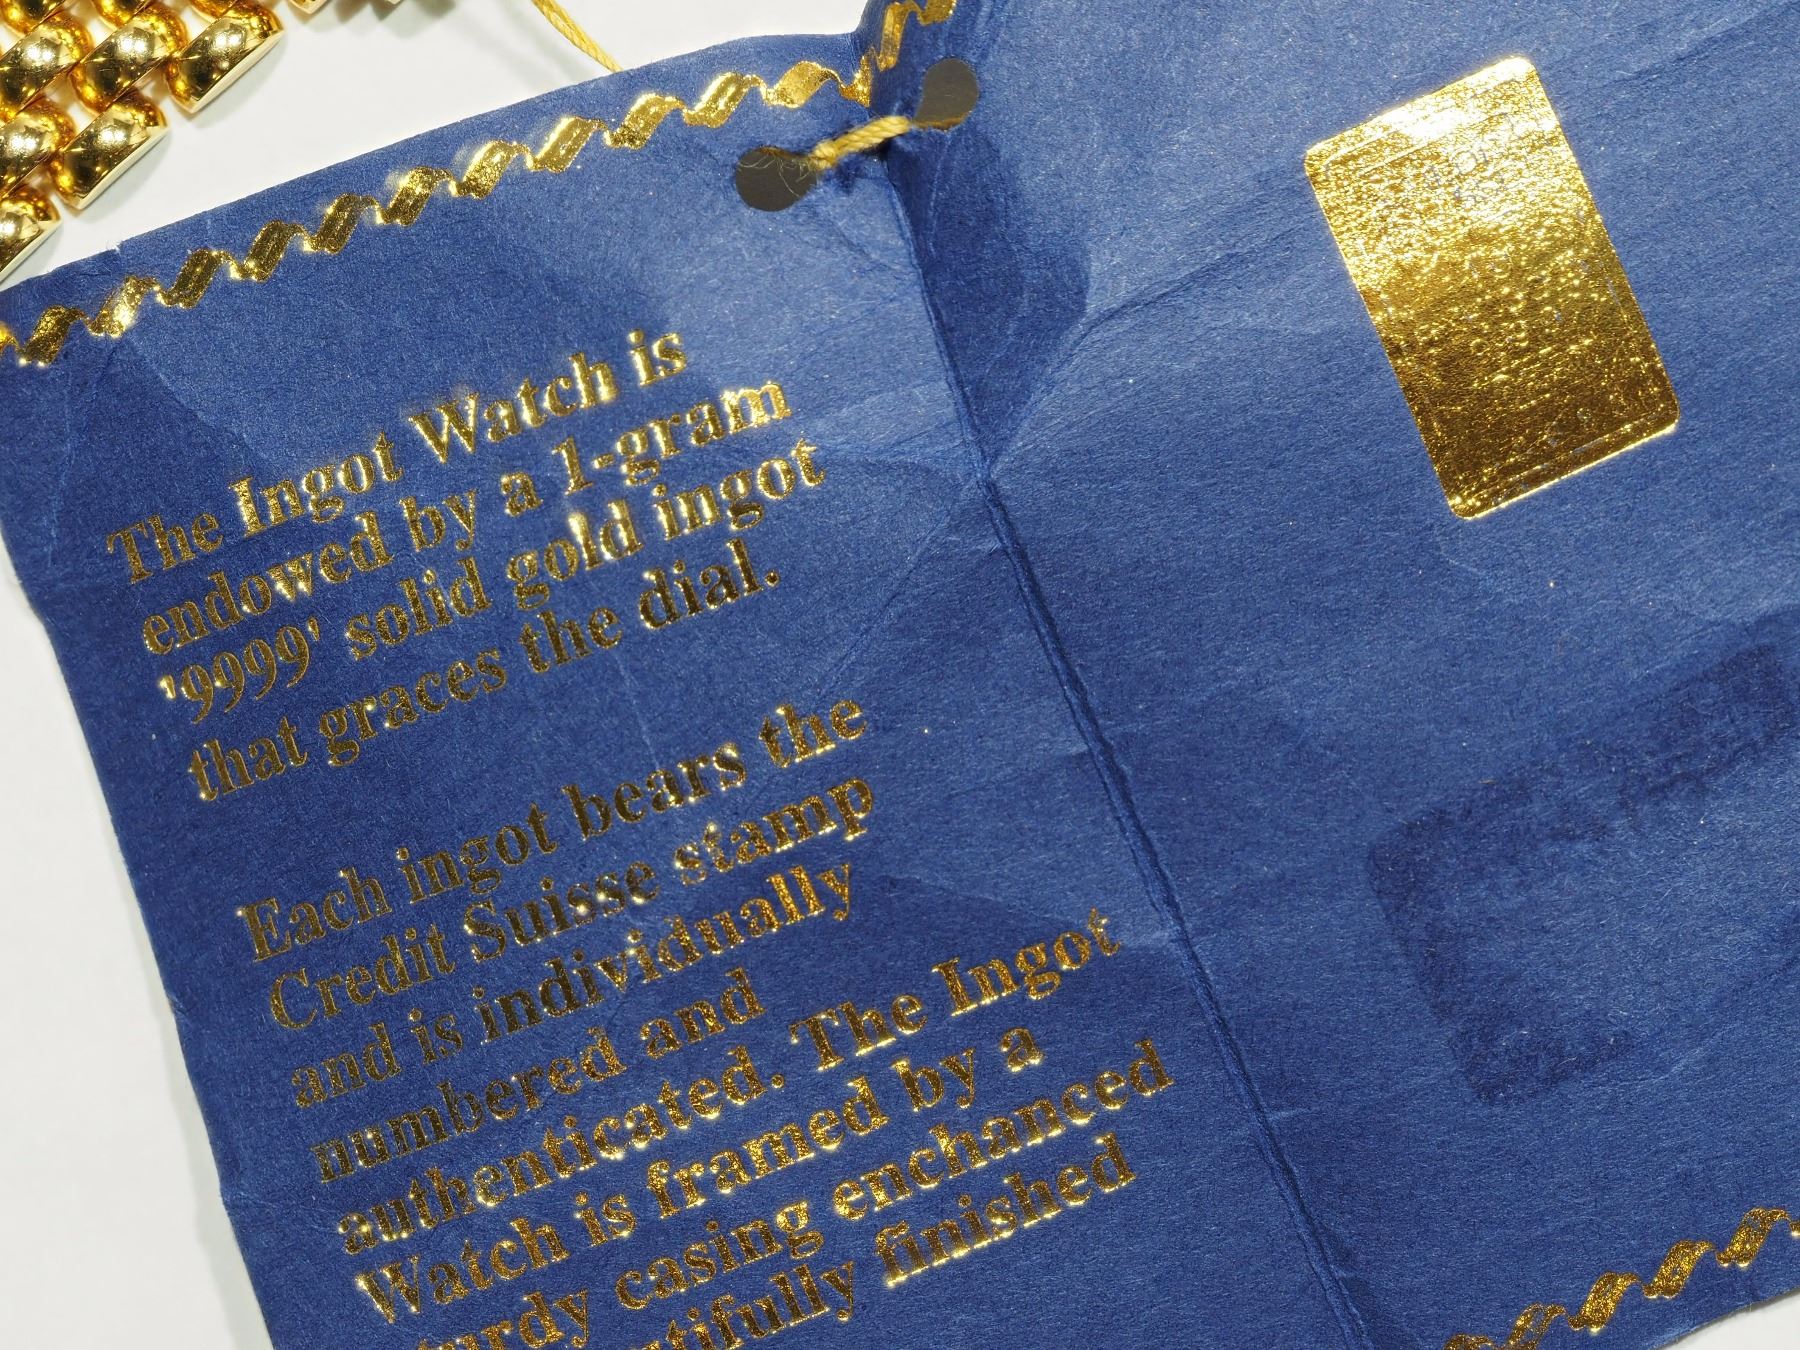 The Ingot Watch is
endowed by a 1-gram
'9999' solid gold ingot
that graces the dial.
Each ingot bears the
Credit Suisse stamp
and is individually
numbered and
authenticated. The Ingot
Watch is framed by a
casing enchanced
finished